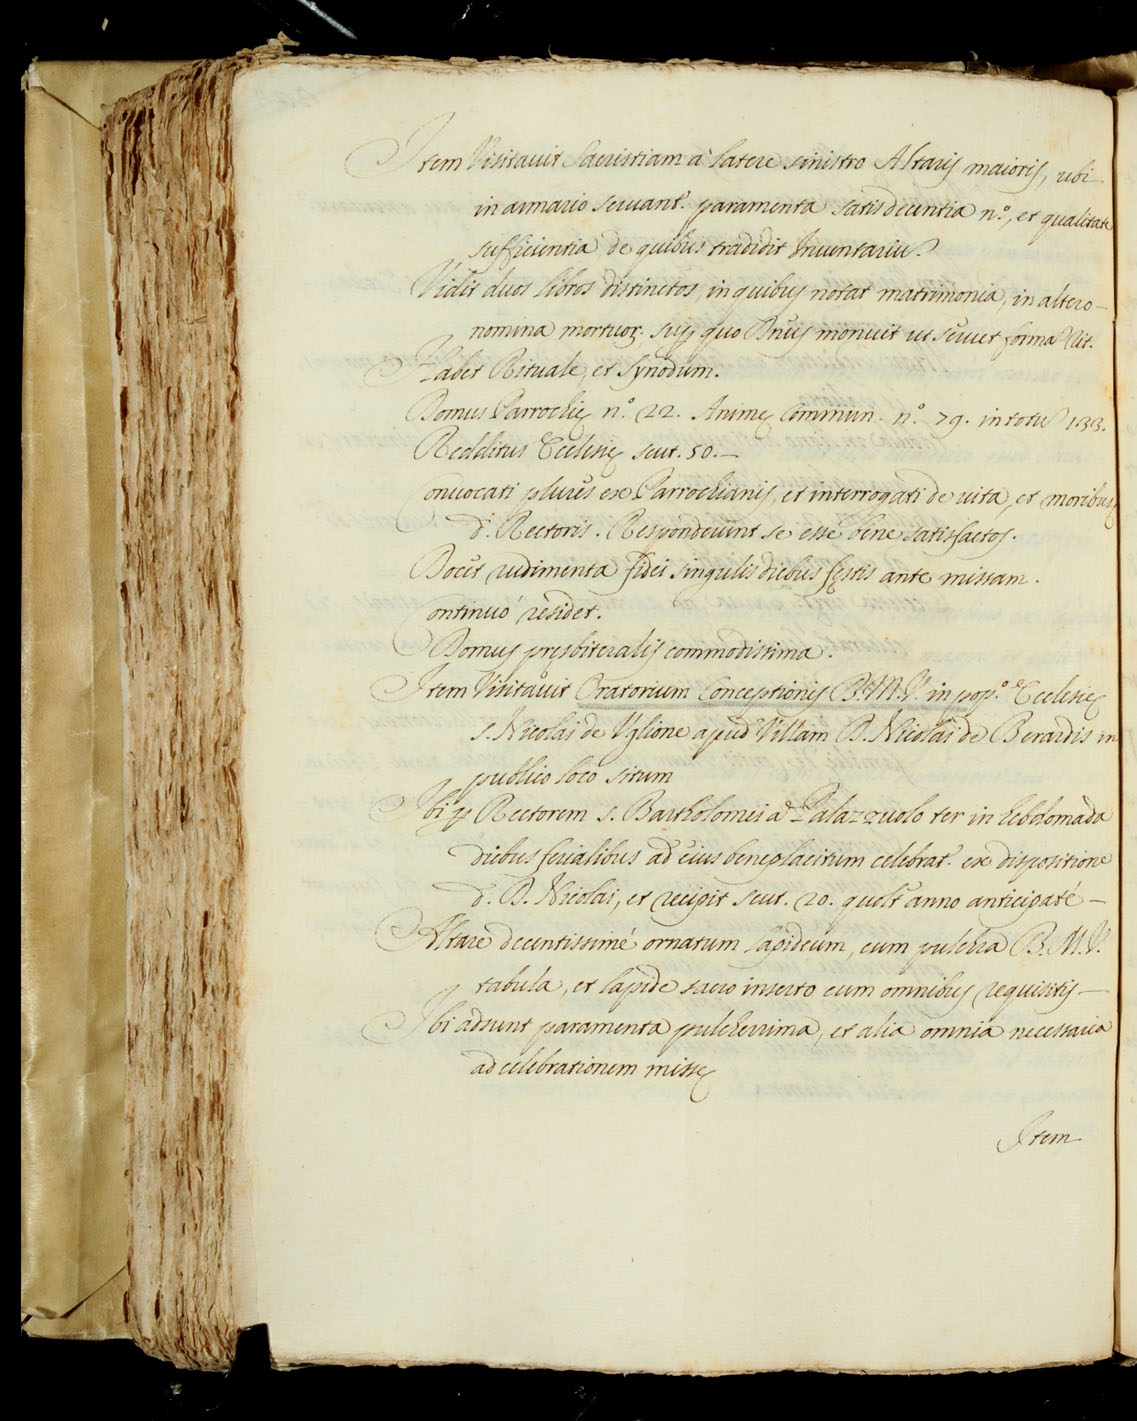 Item Visitauit Sacristiam à latere sinistro Altaris maioris, ubi
in armario seruant. paramenta satis decentia n.º, et qualitate
sufficientia, de quibus tradidit Inuentariũ.
Vidit duos libros distinctos, in quibus notat matrimonia, in altero
nomina mortuor. sup quo Dnũs monuit ut seruet forma Rit.
Habet Rituale, et synodum.
Domus Parrochię n.º 22. Animę Commun. n.º 79. in totũ 133.
Redditus Ecclesię scut. 50.—
Conuocati plures ex Parrochianis, et interrogati de uita, et moribus
d. Rectoris. Responderunt se esse bene satisfactos.
Docet rudimenta fidei singulis diebus festis ante missam.
Continuò residet.
Domus pręsbiteralis commodissima.
Item Visitauit Oratorium Conceptionis B.M.V. in pop.º Ecclesię
s. Nicolai de Vglione apud Villam D. Nicolai de Berardis in
publico loco situm
Ibi p Rectorem s. Bartholomei à Palazzuolo ter in hebdomada
diebus ferialibus ad eius beneplacitum celebrat. ex dispositione
d. D. Nicolai, et recipit scut. 20. quolt anno anticipatè—
Altare decentissimè ornatum lapideum, cum pulchra B.M.V.
tabula, et lapide sacro inserto cum omnibus requisitis—
Ibi adsunt paramenta pulcherrima, et alia omnia necessaria
ad celebrationem missę
Item